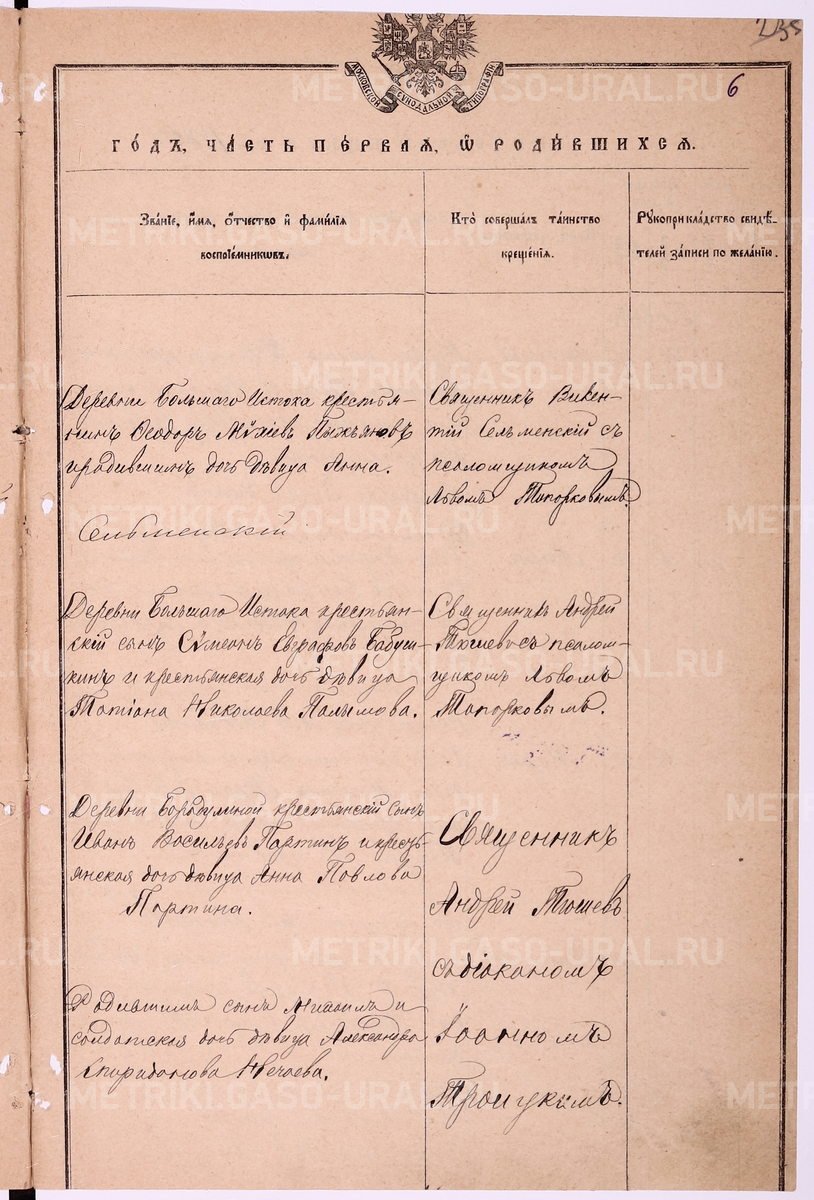 235
6
МОСКОВСКОЙ СѴНОДАЛЬНОЙ ТИПОГРАФІИ
ГО́ДЪ, ЧА́СТЬ ПЕ́РВАЯ, Ѽ РОДИ́ВШИХСЯ.
Зва́нїе, и́мя, о́тчество и фами́лїя
воспрїе́мникѡвъ.
Кто̀ соверша́лъ та́инство
креще́нїя.
Рꙋкоприкла́дство свидѣ́-
телей за́писи по жела́нїю.
Деревни Большаго Истока крестья-
нинъ Ѳеодоръ
и родившихъ дочь дѣвица Анна.
Сельменскій
Священникъ Викен-
тій Сельменскій съ
псаломщикомъ
Львомъ Топорковымъ.
Деревни Большаго Истока крестьян-
скій сынъ Сѵмеонъ Евграфовъ Бабуш-
кинъ и крестьянская дочь дѣвица
Татіана Николаева Палымова.
Священникъ Андрей
Тюшевъ съ псалом-
щикомъ Львомъ
Топорковымъ.
Деревни Бородулиной крестьянскій сынъ
Иванъ Васильевъ Партинъ и кресть-
янская дочь дѣвица Анна Павлова
Партина.
Священникъ
Андрей Тюшевъ
съ діакономъ
Іоанномъ
Троицкимъ.
Родившихъ сынъ Михаилъ и
солдатская дочь дѣвица Александра
Спиридонова Нечаева.
METRIKI.GASO-URAL.RU